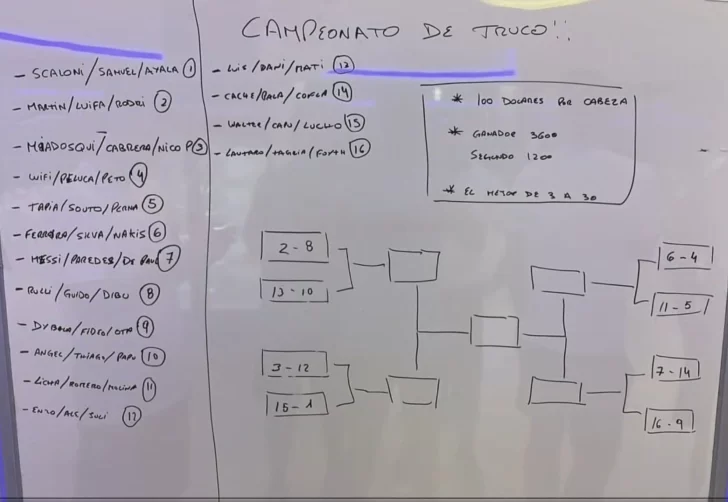 CAMPEONATO DE TRUCO!!
- SCALONI/SAMUEL/AYALA 1
- MARTIN/LUIFA/RODRI 2
- MIADOSQUI/CABRERA/NICO P 3
- WIFI/PELUCA/PETO 4
- TAPIA/SOUTO/PERNA 5
- FERREIRA/SILVA/NAKIS 6
- MESSI/PAREDES/DE PAUL 7
- RULLI/GUIDO/DIBU 8
- DYBALA/FIDEO/OTA 9
- ANGEL/THIAGO/PAPU 10
- LICHA/ROMERO/MOLINA 11
- ENZO/ALE/JULI 12
- LUIS/DANI/MATI 13
- CACHE/BALA/ 14
- WALTER/CANI/LUCHO 15
- LAUTARO/TAGLIA/FOYTH 16
* 100 DOLARES POR CABEZA
* GANADOR 3600
SEGUNDO 1200
* EL MEJOR DE 3 A 30
2-8
13-10
3-12
15-1
6-4
11-5
7-14
16-9